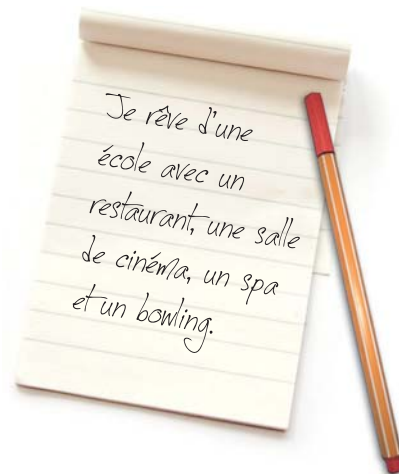 Je rêve d'une
école avec un
restaurant, une salle
de cinéma, un spa
et un bowling.